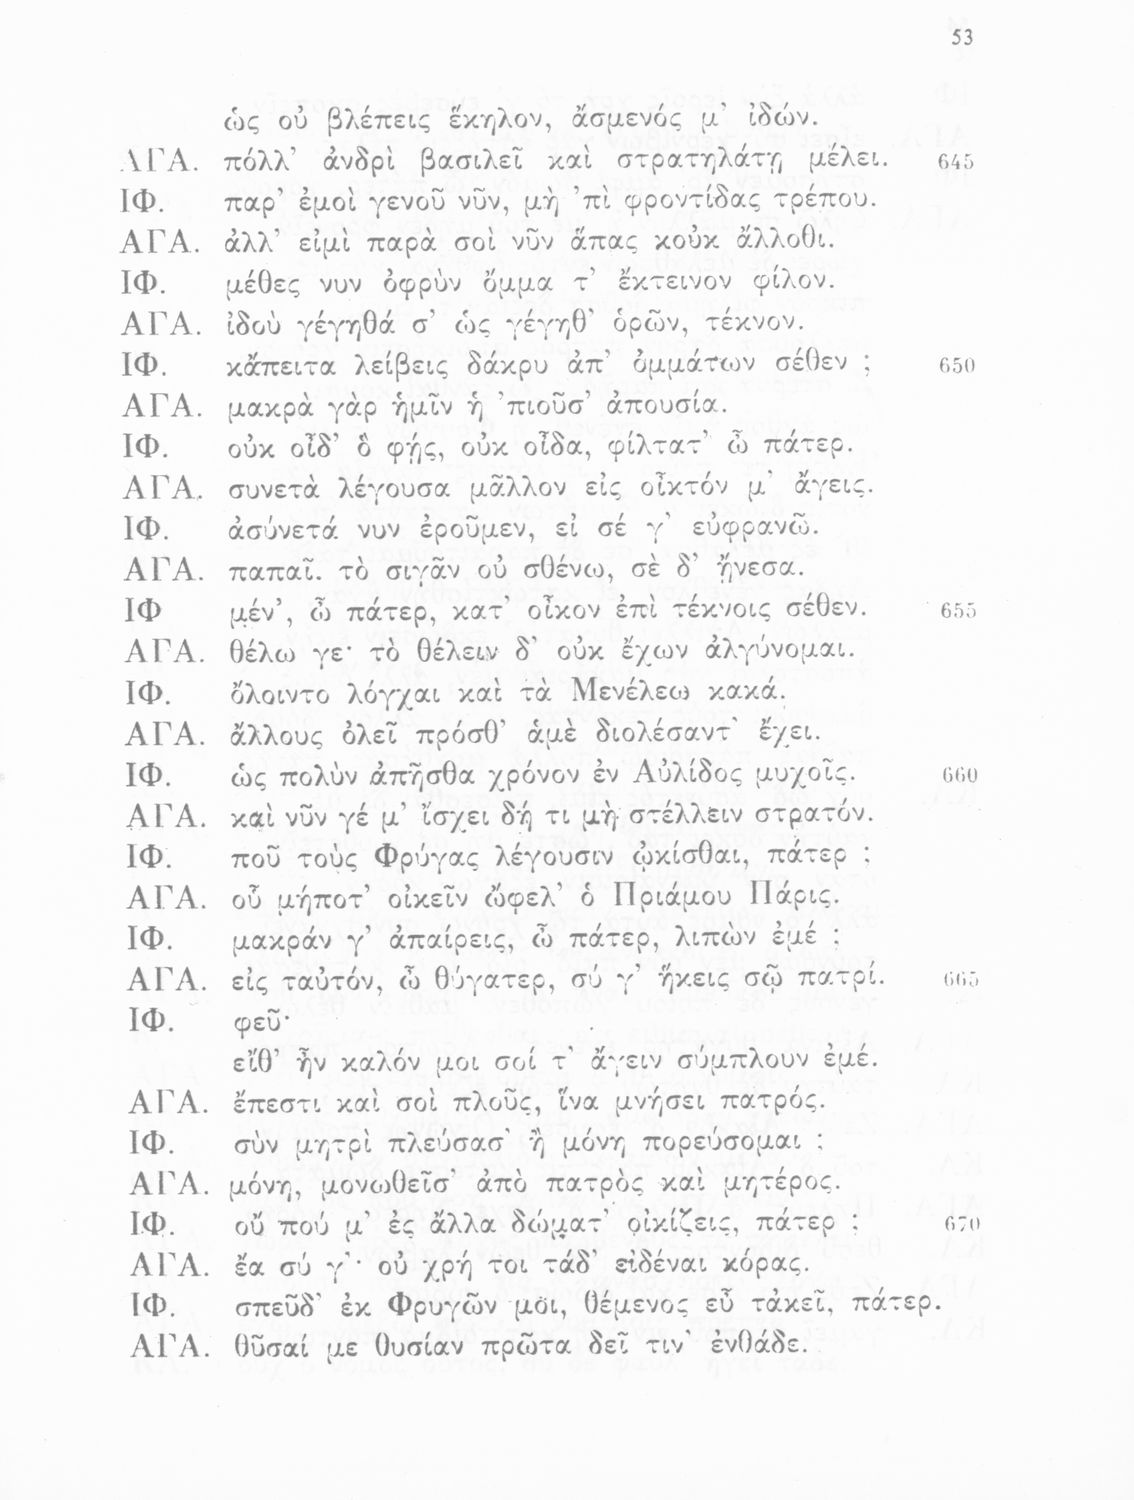 53
ὡς οὐ βλέπεις ἕκηλον, ἄσμενός μ’ ἰδών.
ΑΓΑ. πόλλ’ ἀνδρὶ βασιλεῖ καὶ στρατηλάτῃ μέλει. 645
ΙΦ. παρ’ ἐμοὶ γενοῦ νῦν, μὴ ’πὶ φροντίδας τρέπου.
ΑΓΑ. ἀλλ’ εἰμὶ παρὰ σοὶ νῦν ἅπας κοὐκ ἄλλοθι.
ΙΦ. μέθες νυν ὀφρὺν ὄμμα τ’ ἔκτεινον φίλον.
ΑΓΑ. ἰδοὺ γέγηθά σ’ ὡς γέγηθ’ ὁρῶν, τέκνον.
ΙΦ. κἄπειτα λείβεις δάκρυ ἀπ’ ὀμμάτων σέθεν ; 650
ΑΓΑ. μακρὰ γὰρ ἡμῖν ἡ ’πιοῦσ’ ἀπουσία.
ΙΦ. οὐκ οἶδ’ ὅ φῄς, οὐκ οἶδα, φίλτατ’ ὦ πάτερ.
ΑΓΑ. συνετὰ λέγουσα μᾶλλον εἰς οἶκτόν μ’ ἄγεις.
ΙΦ. ἀσύνετά νυν ἐροῦμεν, εἰ σέ γ’ εὐφρανῶ.
ΑΓΑ. παπαῖ. τὸ σιγᾶν οὐ σθένω, σὲ δ’ ᾔνεσα.
ΙΦ μέν’, ὦ πάτερ, κατ’ οἶκον ἐπὶ τέκνοις σέθεν. 655
ΑΓΑ. θέλω γε· τὸ θέλειν δ’ οὐκ ἔχων ἀλγύνομαι.
ΙΦ. ὄλοιντο λόγχαι καὶ τὰ Μενέλεω κακά.
ΑΓΑ. ἄλλους ὀλεῖ πρόσθ’ ἁμὲ διολέσαντ’ ἔχει.
ΙΦ. ὡς πολὺν ἀπῆσθα χρόνον ἐν Αὐλίδος μυχοῖς. 660
ΑΓΑ. καὶ νῦν γέ μ’ ἴσχει δή τι μὴ στέλλειν στρατόν.
ΙΦ. ποῦ τοὺς Φρύγας λέγουσιν ᾠκίσθαι, πάτερ ;
ΑΓΑ. οὗ μήποτ’ οἰκεῖν ὤφελ’ ὁ Πριάμου Πάρις.
ΙΦ. μακράν γ’ ἀπαίρεις, ὦ πάτερ, λιπὼν ἐμέ ;
ΑΓΑ. εἰς ταὐτόν, ὦ θύγατερ, σύ γ’ ἥκεις σῷ πατρί. 665
ΙΦ. φεῦ·
εἴθ’ ἦν καλόν μοι σοί τ’ ἄγειν σύμπλουν ἐμέ.
ΑΓΑ. ἔπεστι καὶ σοὶ πλοῦς, ἵνα μνήσει πατρός.
ΙΦ. σὺν μητρὶ πλεύσασ’ ἢ μόνη πορεύσομαι ;
ΑΓΑ. μόνη, μονωθεῖσ’ ἀπὸ πατρὸς καὶ μητέρος.
ΙΦ. οὔ πού μ’ ἐς ἄλλα δώματ’ οἰκίζεις, πάτερ ; 670
ΑΓΑ. ἔα σύ γ’· οὐ χρή τοι τάδ’ εἰδέναι κόρας.
ΙΦ. σπεῦδ’ ἐκ Φρυγῶν μοι, θέμενος εὖ τἀκεῖ, πάτερ.
ΑΓΑ. θῦσαί με θυσίαν πρῶτα δεῖ τιν’ ἐνθάδε.